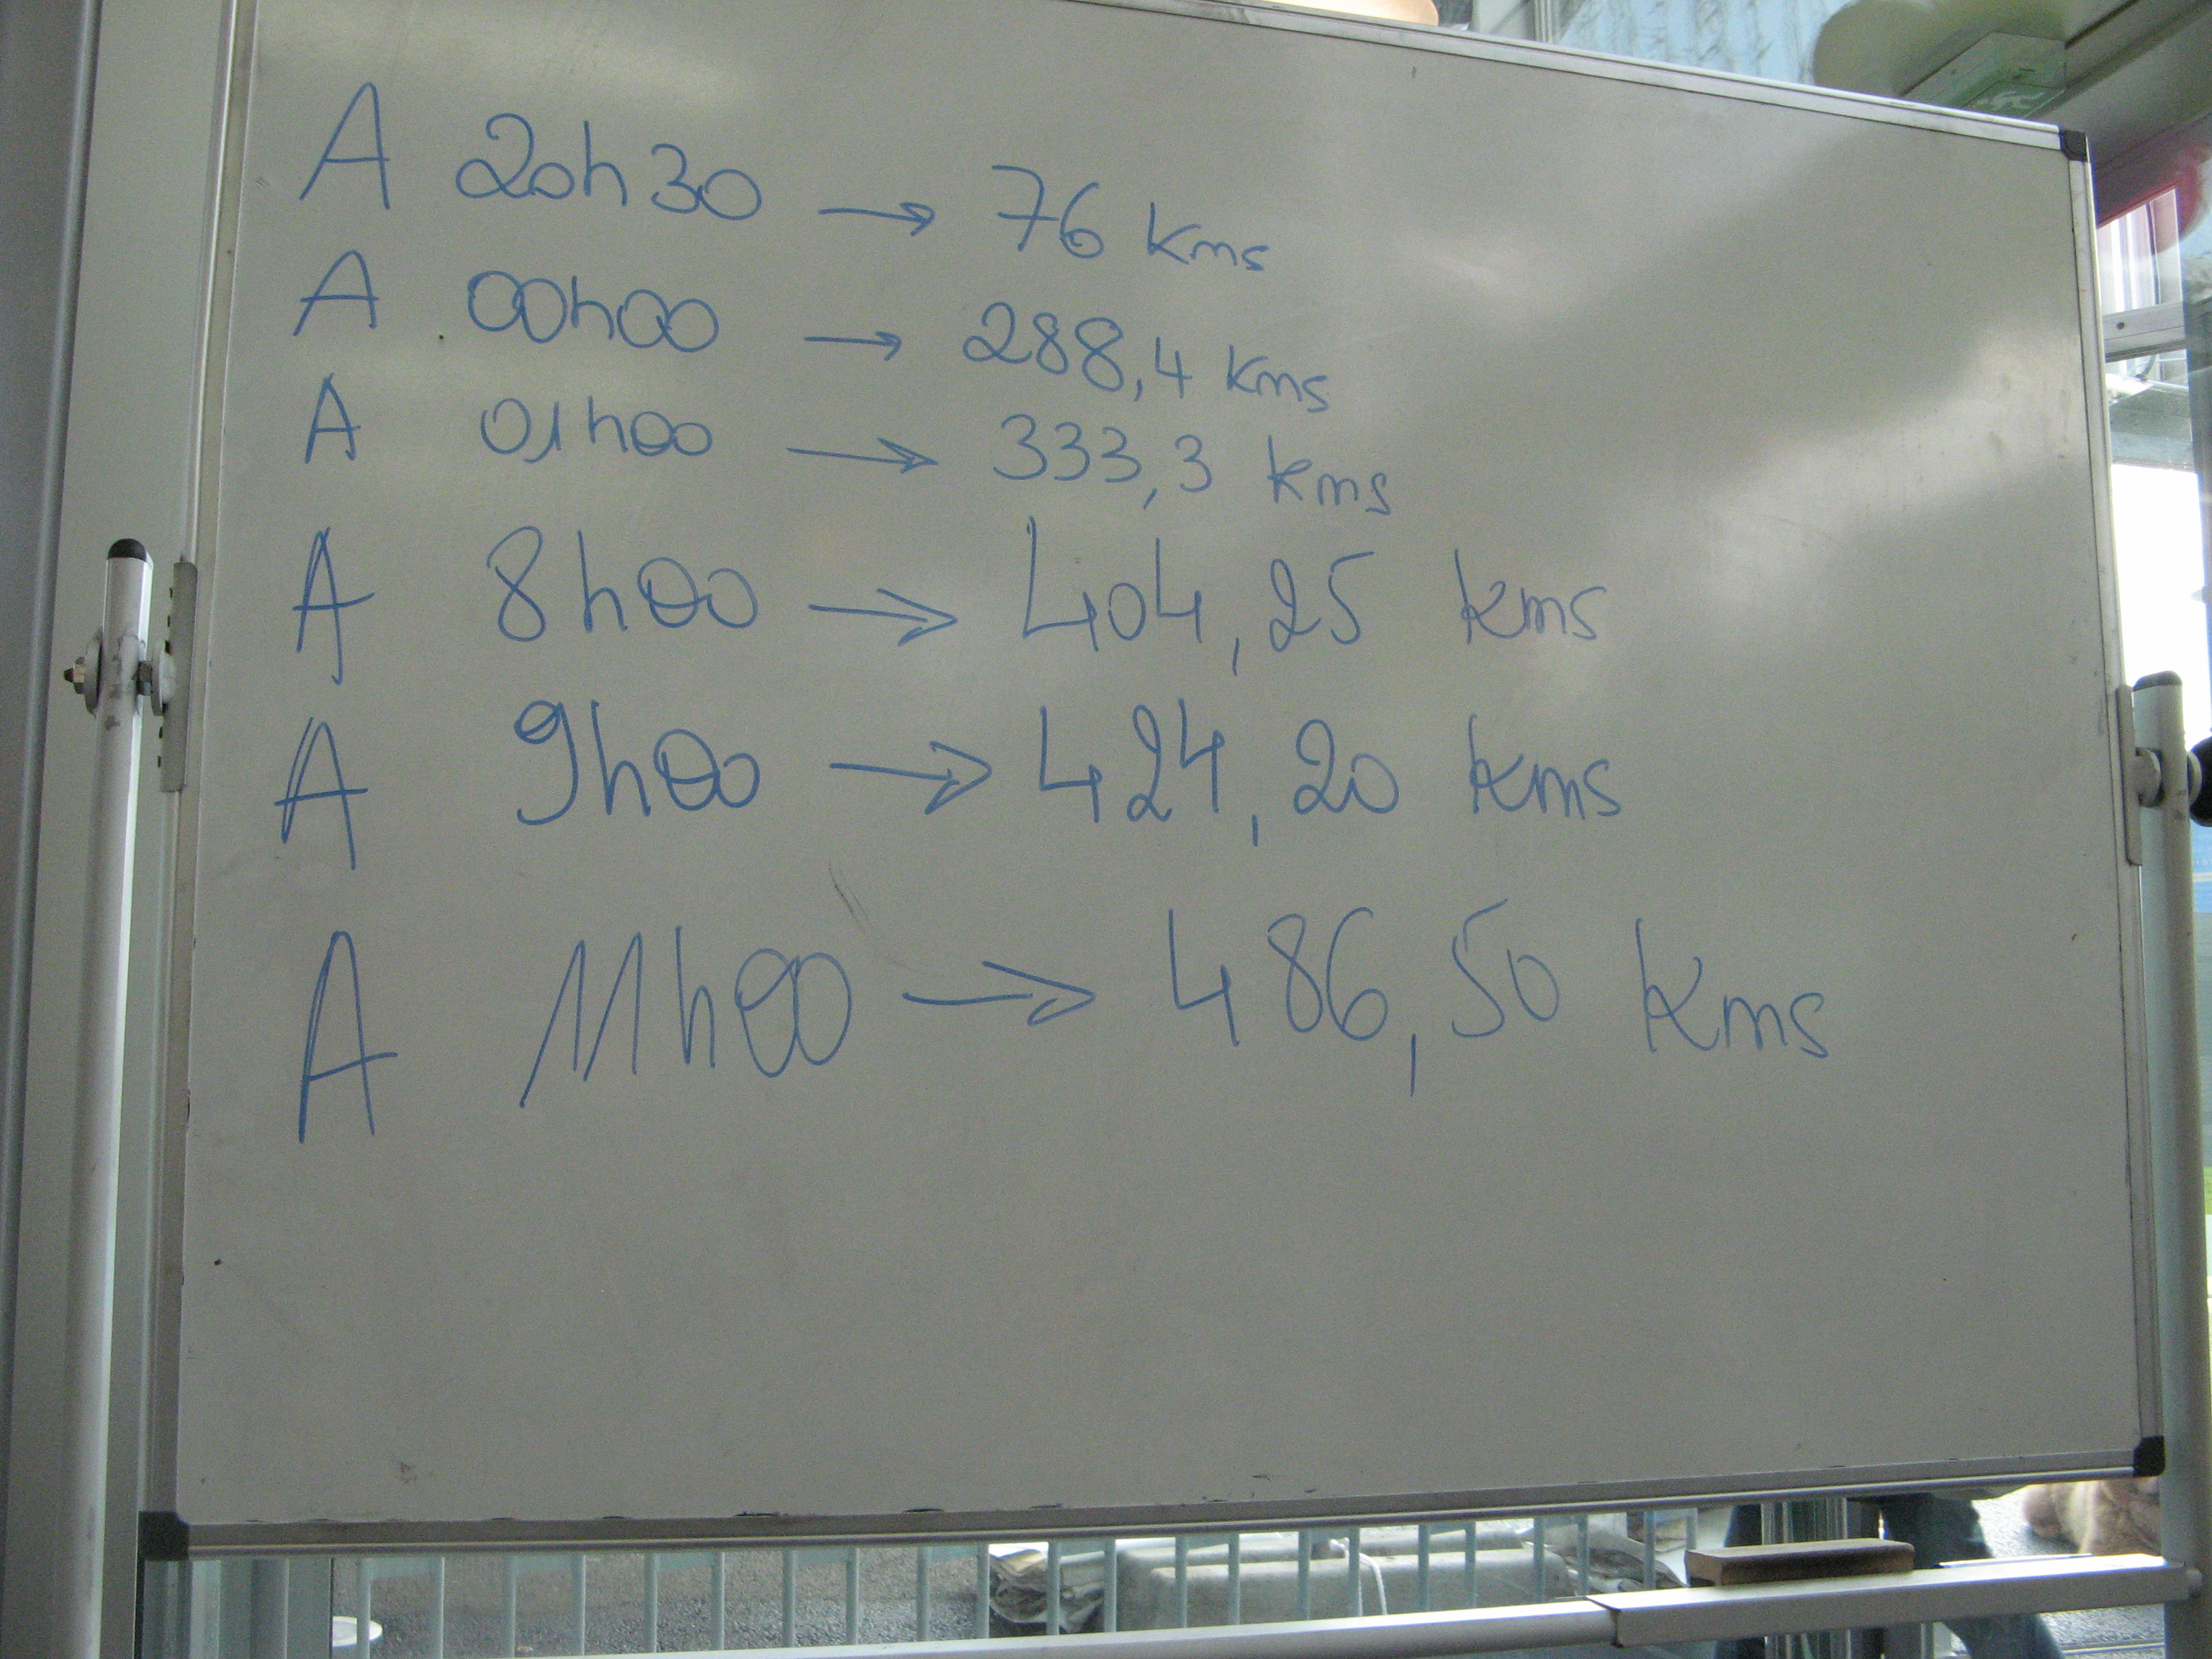 A 20h30 → 76 kms
A 00h00 → 288,4 kms
A 01h00 → 333,3 kms
A 8h00 → 404,25 kms
A 9h00 → 424,20 kms
A 11h00 → 486,50 kms